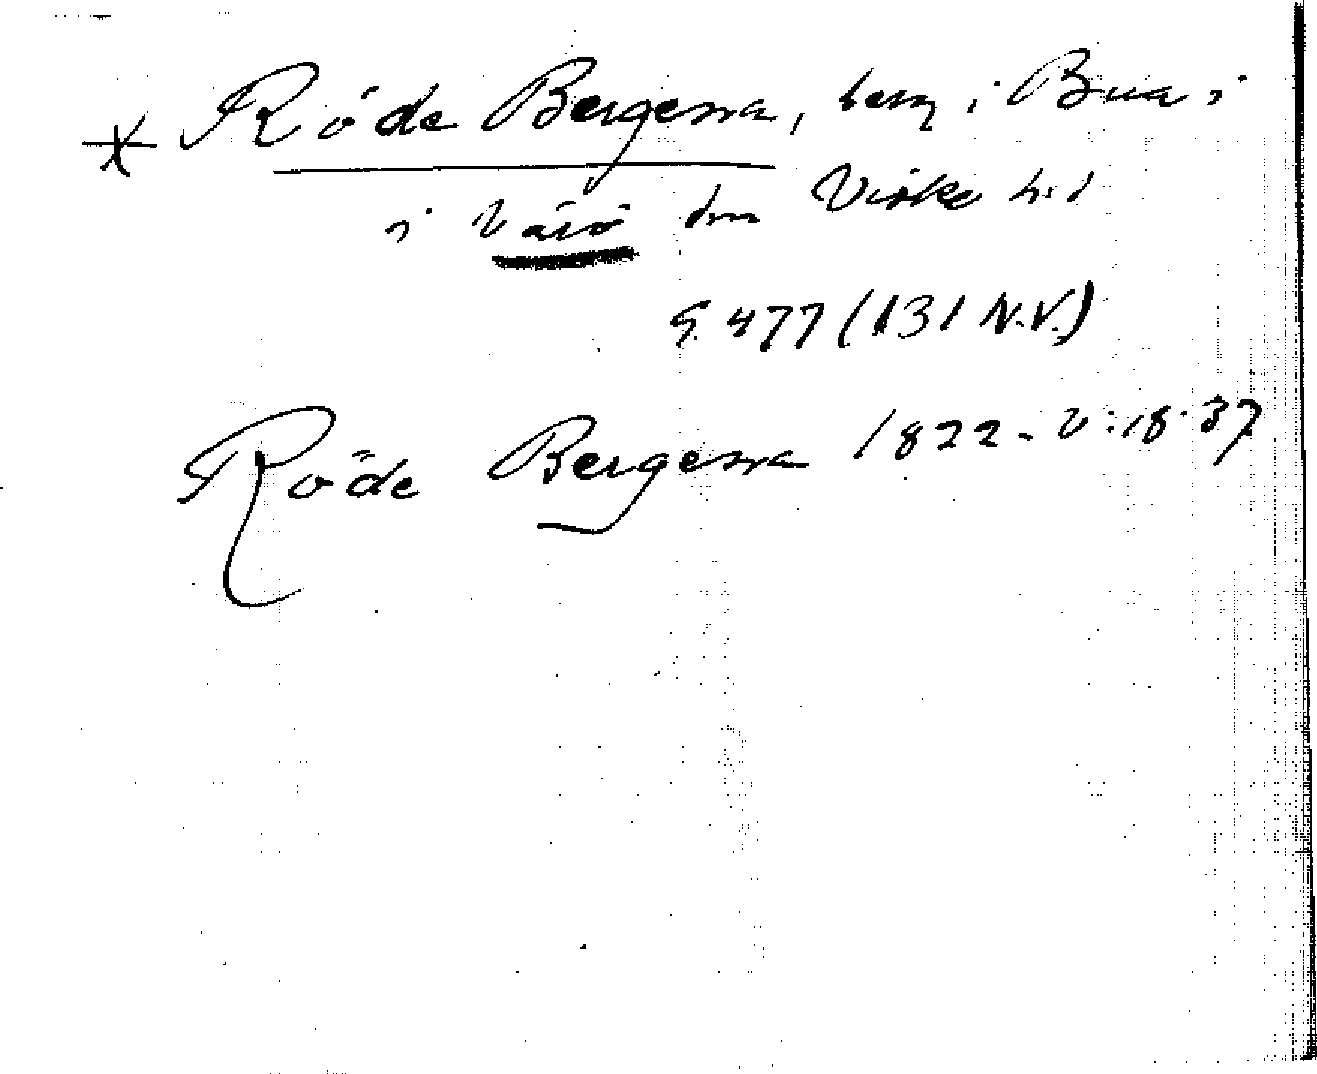 * Röde Bergena, berg i Bua i
i Värö sn Viske hd
G. 477 (131 N.V.)
Röde Bergena 1822-V:18:37